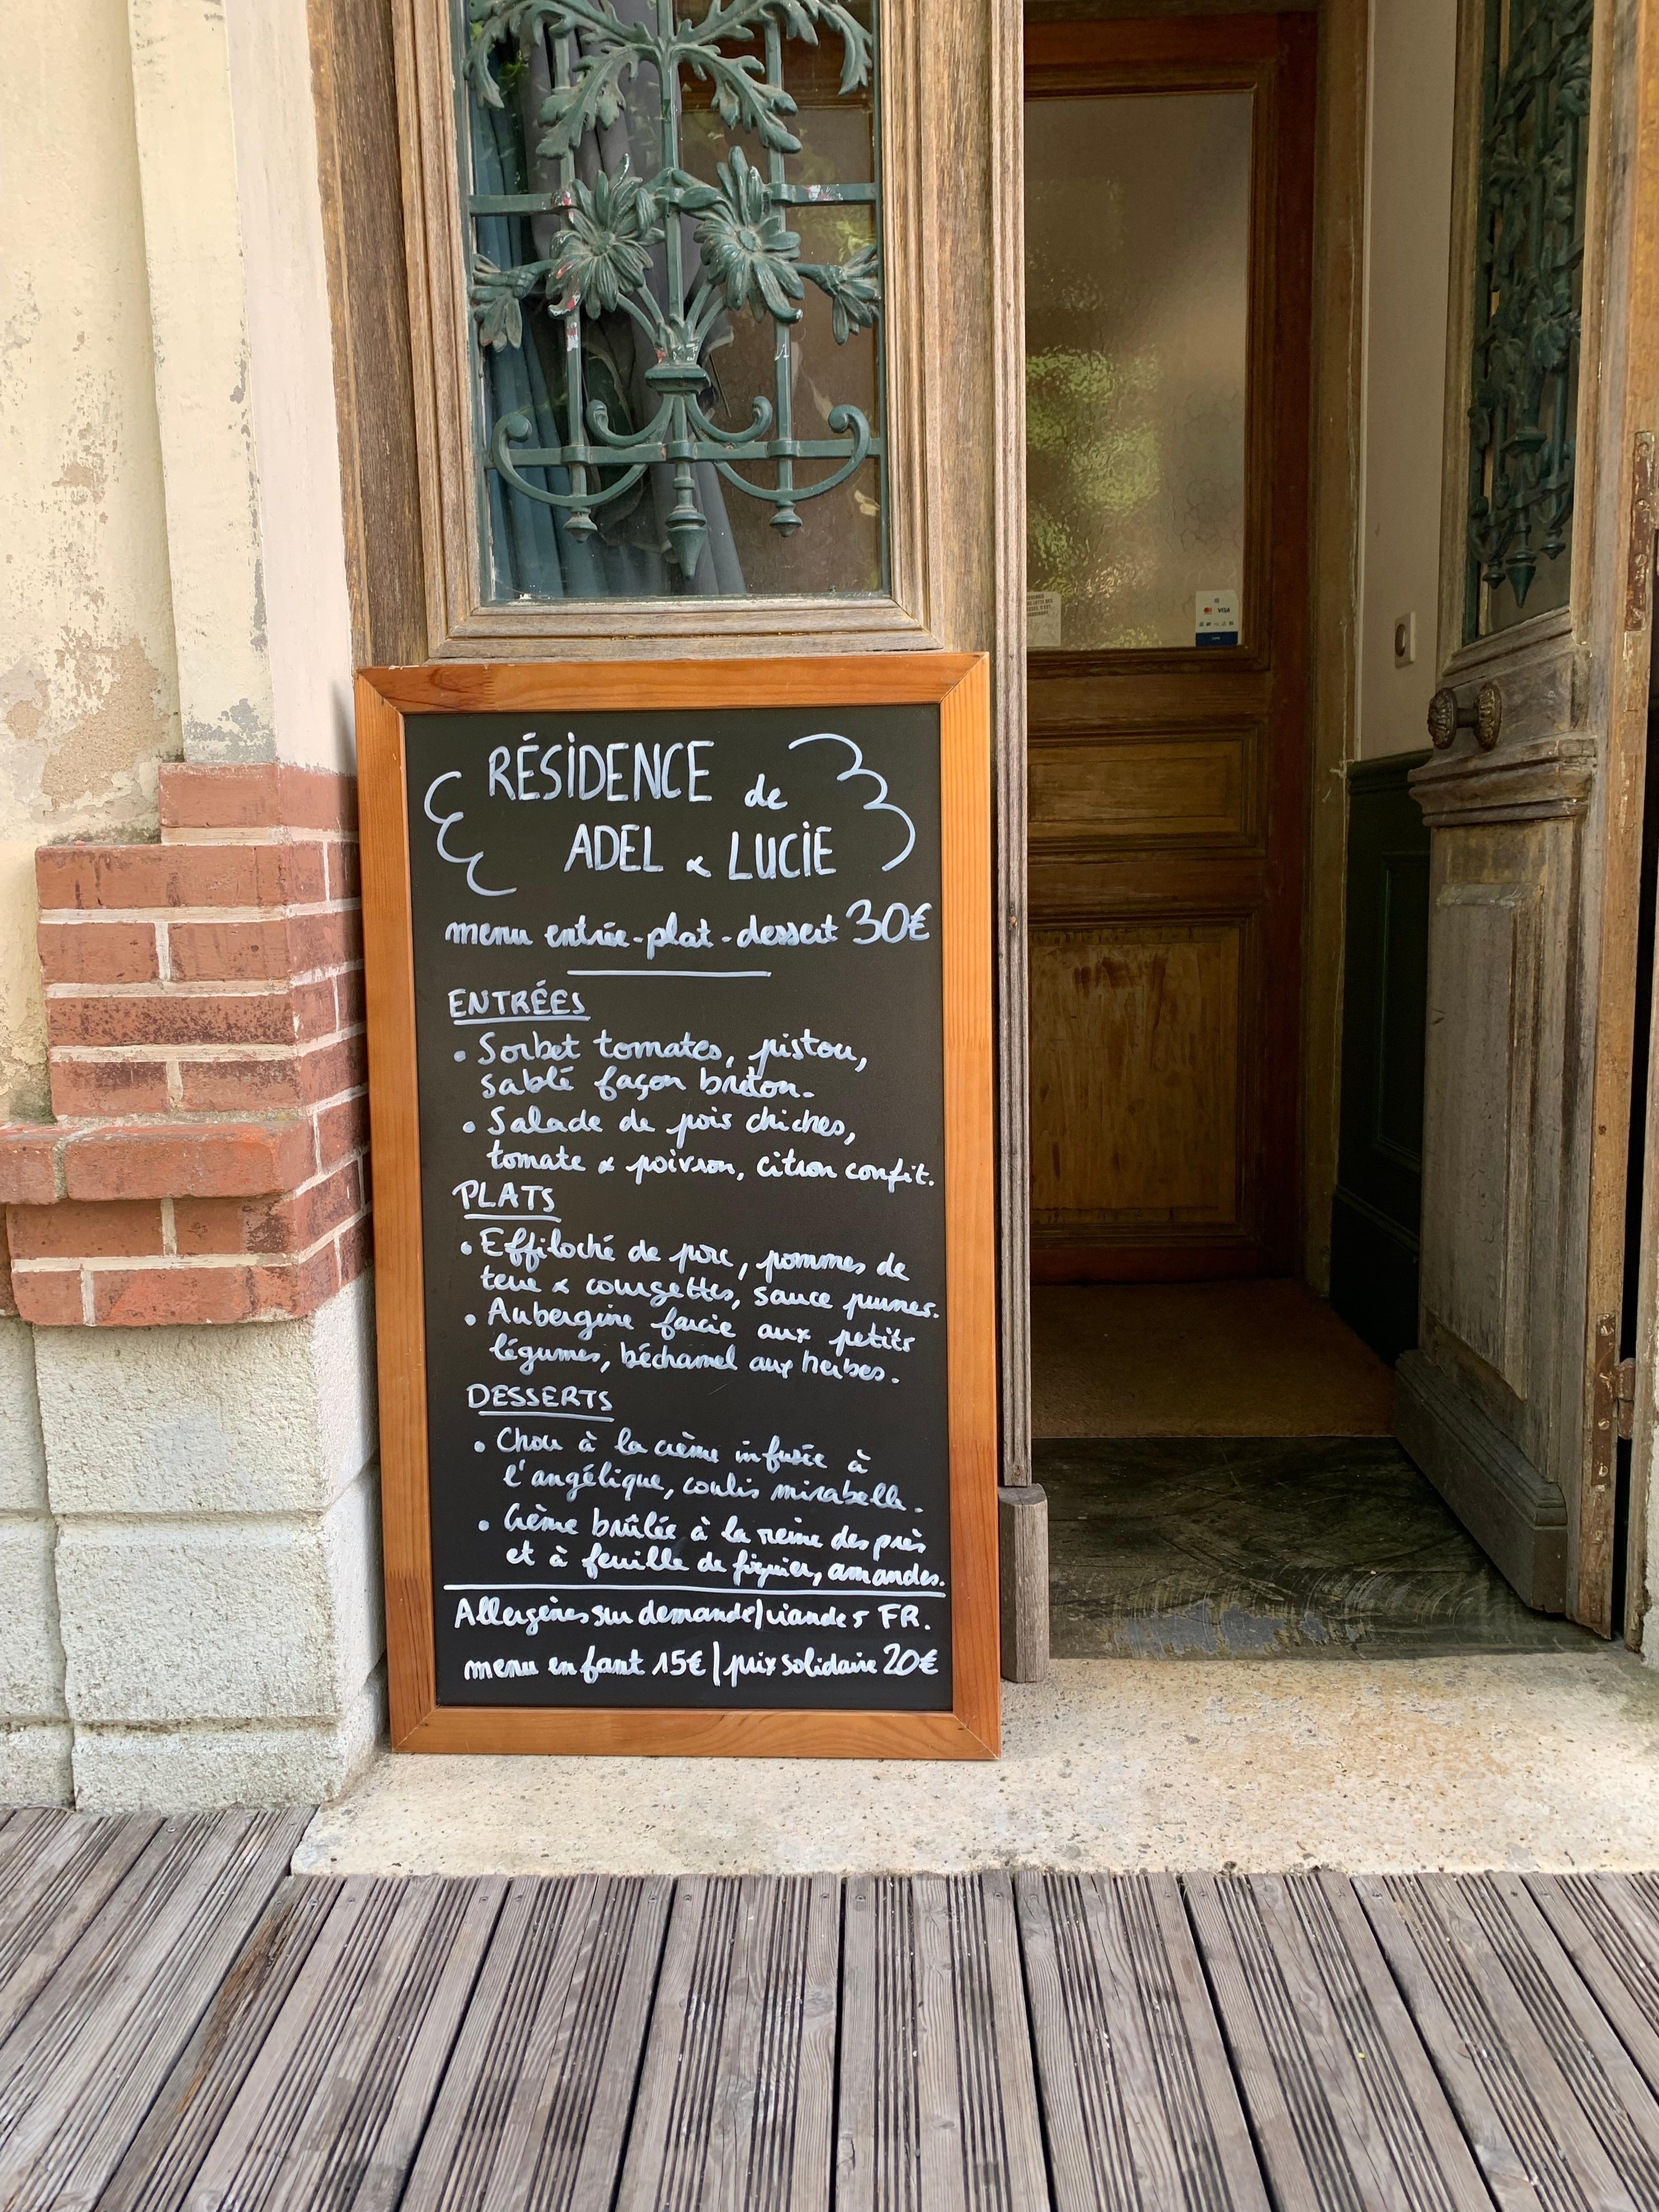 RÉSIDENCE de
ADEL & LUCIE
menu entrée-plat-dessert 30€
ENTRÉES
• Sorbet tomates, pistou,
sablé façon breton.
• Salade de pois chiches,
tomate & poivron, citron confit.
PLATS
• Effiloché de porc, pommes de
terre & courgettes, sauce prunes.
• Aubergine farcie aux petits
légumes, béchamel aux herbes.
DESSERTS
• Chou à la crème infusée à
l'angélique, coulis mirabelle.
• Crème brûlée à la reine des près
et à feuille de figuier, amandes.
Allergènes sur demande/viandes FR.
menu enfant 15€ | prix solidaire 20€
VISA